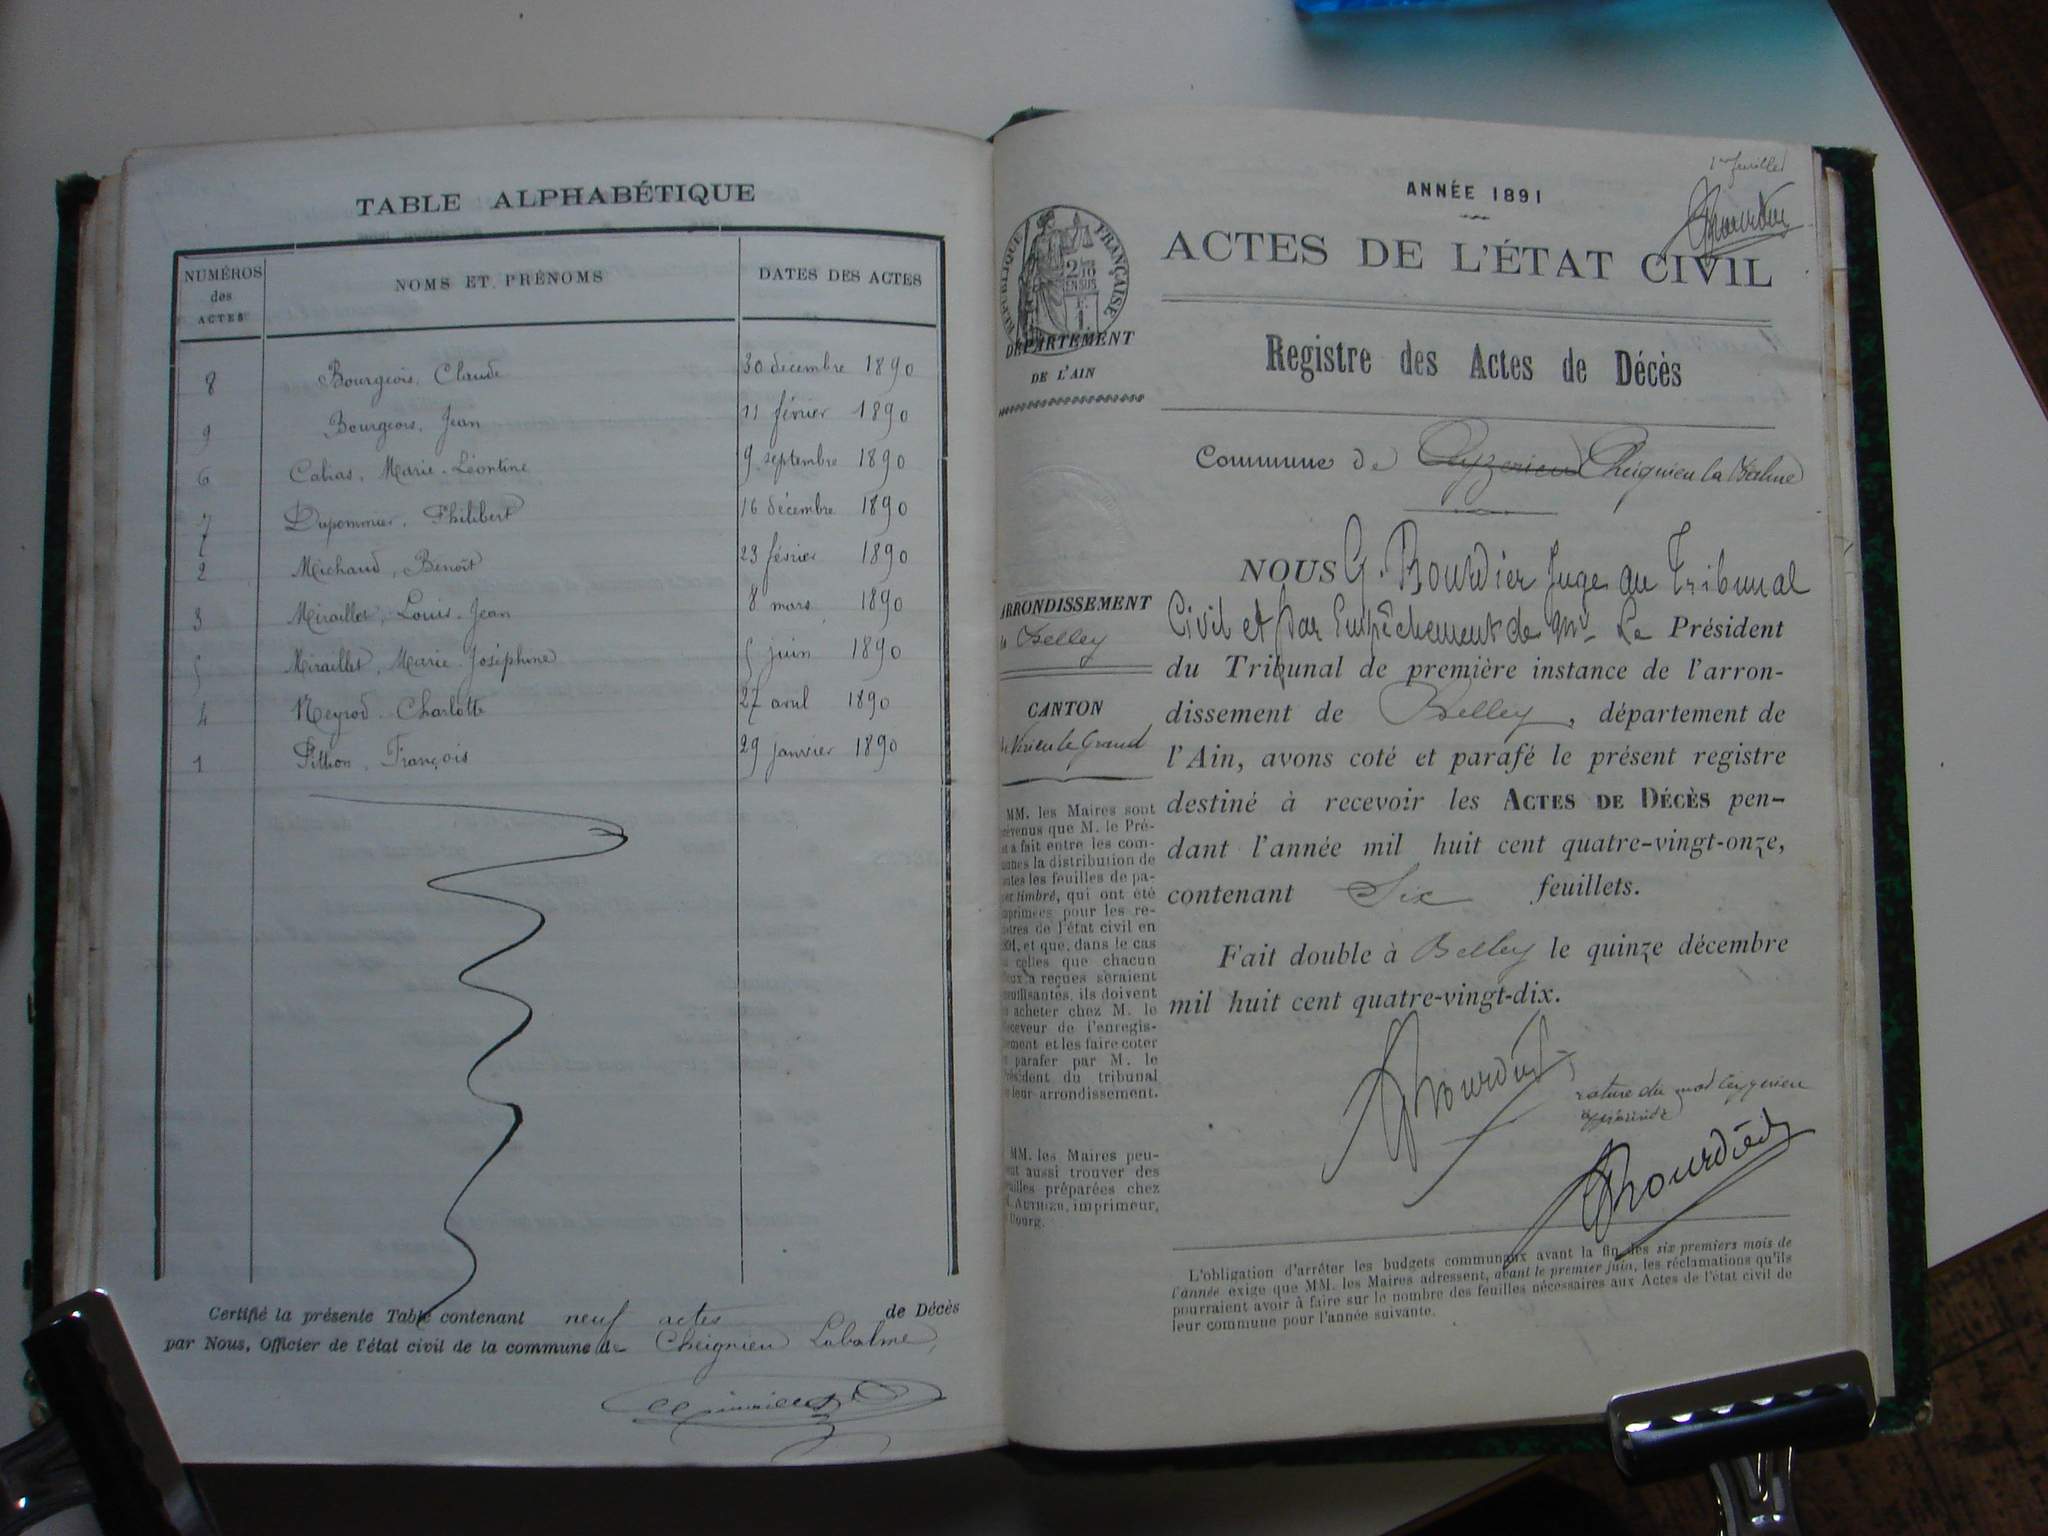 TABLE ALPHABÉTIQUE
NUMÉROS des ACTES
NOMS ET PRÉNOMS
DATES DES ACTES
8 Bourgeois, Claude 30 décembre 1890
9 Bourgeois, Jean 11 février 1890
6 Calias, Marie-Léontine 9 septembre 1890
7 Dupommier, Philibert 16 décembre 1890
2 Michaud, Benoît 23 février 1890
3 Miraillet, Louis-Jean 8 mars 1890
5 Miraillet, Marie-Joséphine 5 juin 1890
4 Neyrod Charlotte 27 avril 1890
1 Pittion, François 29 janvier 1890
Certifié la présente Table contenant neuf actes de Décès
par Nous, Officier de l'état civil de la commune de Cheignieu Labalme,
1er feuillet
ANNÉE 1891
ACTES DE L'ÉTAT CIVIL
RÉPUBLIQUE FRANÇAISE
2 10 EN SUS
F. 1
DÉPARTEMENT
DE L'AIN
Registre des Actes de Décès
Commune de Ceyzerieu Cheignieu la Balme
ARRONDISSEMENT
Belley
CANTON
Virieu le Grand
NOUS G. Bourdier Juge au Tribunal
Civil et par Empêchement de Mr. Le Président
du Tribunal de première instance de l'arron-
dissement de Belley, département de
l'Ain, avons coté et parafé le présent registre
destiné à recevoir les ACTES DE DÉCÈS pen-
dant l'année mil huit cent quatre-vingt-onze,
contenant Six feuillets.
Fait double à Belley le quinze décembre
mil huit cent quatre-vingt-dix.
Bourdier
rature du mot Ceyzerieu
approuvée
Bourdier
MM. les Maires sont
que M. le Pré-
a fait entre les com-
la distribution de
les feuilles de pa-
timbré, qui ont été
pour les re-
de l'état civil en
et que, dans le cas
celles que chacun
reçues seraient
ils doivent
acheter chez M. le
de l'enregis-
et les faire coter
parafer par M. le
du tribunal
leur arrondissement.
MM. les Maires peu-
aussi trouver des
préparées chez
imprimeur,
Bourg.
L'obligation d'arrêter les budgets communaux avant la fin des six premiers mois de
l'année exige que MM. les Maires adressent, avant le premier juin, les réclamations qu'ils
pourraient avoir à faire sur le nombre des feuilles nécessaires aux Actes de l'état civil de
leur commune pour l'année suivante.